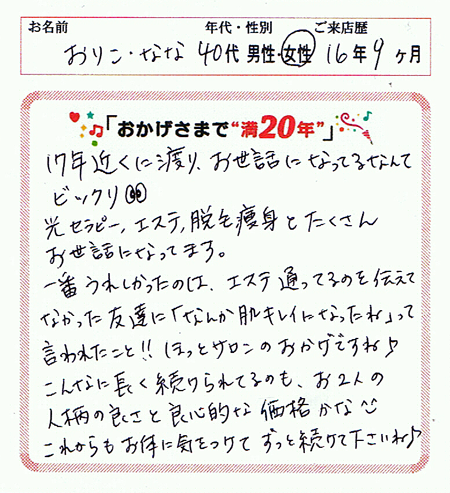 お名前 年代・性別 ご来店歴
おりこ・なな 40代 男性・女性 16年9ヶ月
「おかげさまで“満20年”」
17年近くに渡り、お世話になってるなんて
ビックリ
光セラピー、エステ、脱毛、痩身とたくさん
お世話になってます。
一番うれしかったのは、エステ通ってるのを伝えて
なかった友達に「なんか肌キレイになったね」って
言われたこと!! ほっとサロンのおかげですね♪
こんなに長く続けられてるのも、お2人の
人柄の良さと良心的な価格かな
これからもお体に気をつけてずっと続けて下さいね♪